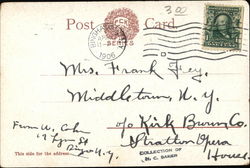 Post Card
3.00
BINGHAMTON
1906
Mrs. Frank Fey.
Middletown, N. Y.
c/o Kirk Brown Co.
Stratton Opera
House
From W. C.
N.Y.
This side for the address.
COLLECTION OF
H. C. BAKER